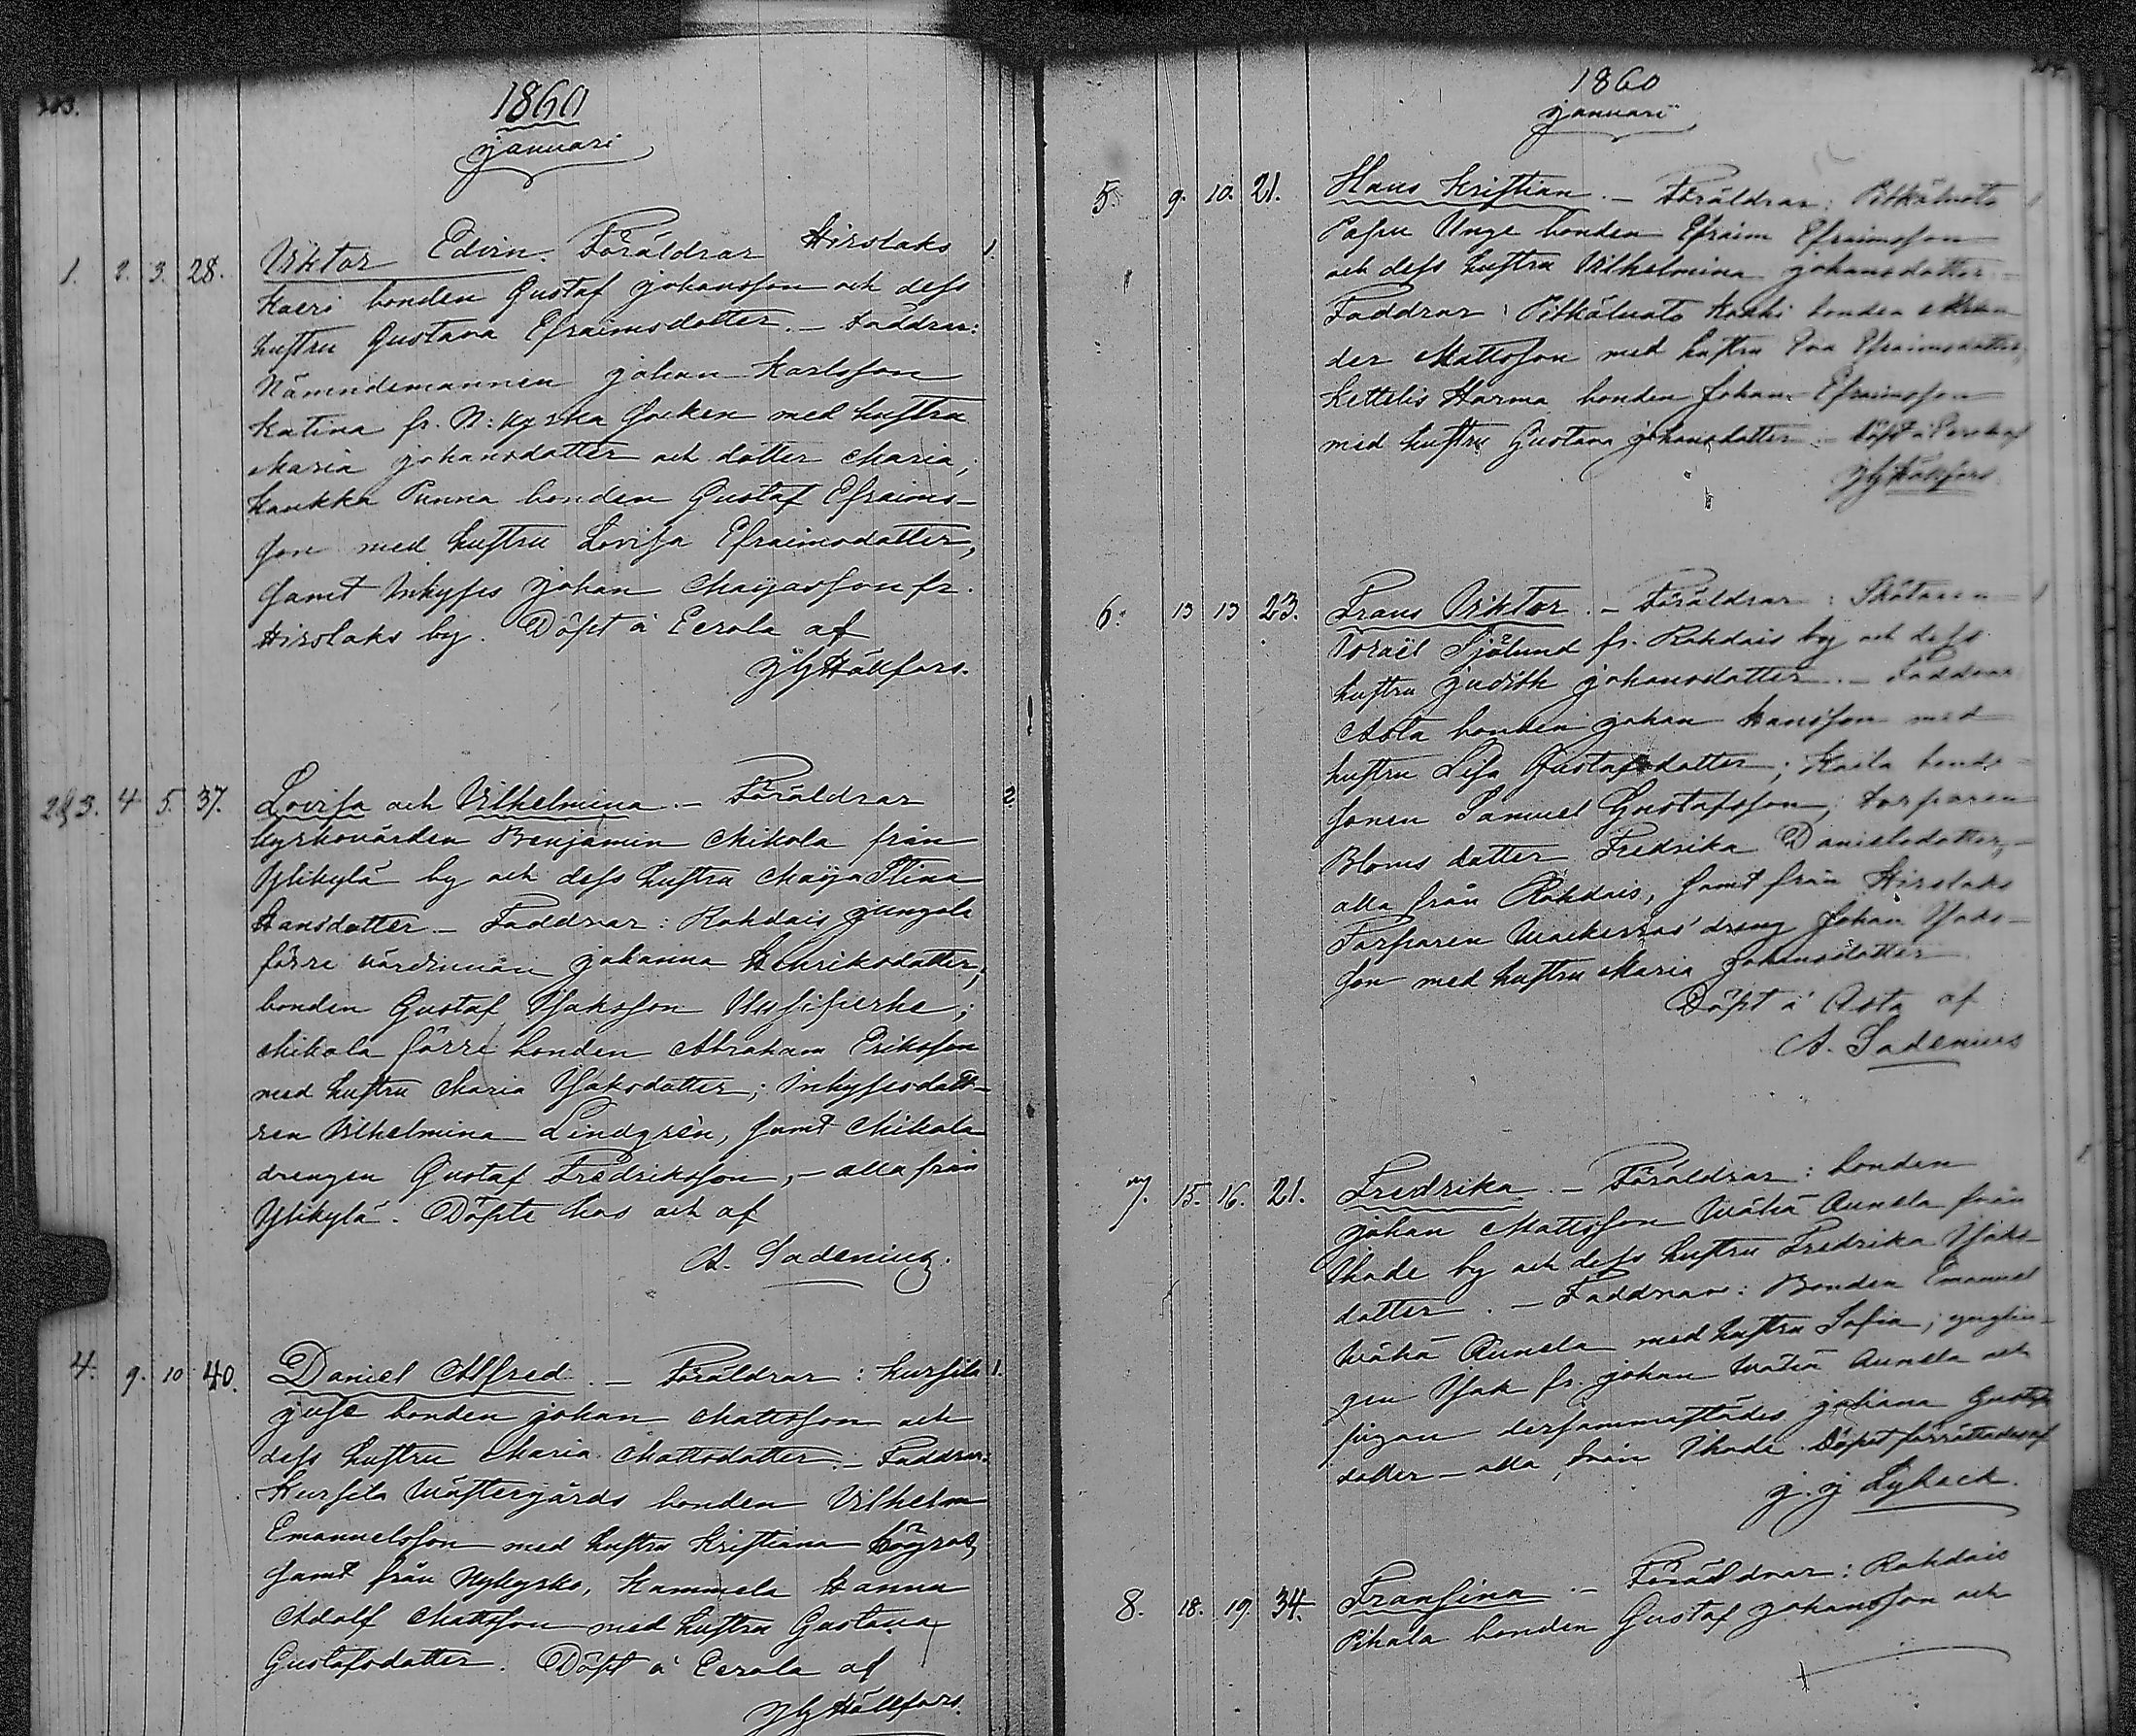 1860
januari
1. 2. 3. 28. Viktor Edvin. Föräldrar Hirslaks 1.
Kaeri bonden Gustaf Johansson och dess
hustru Gustava Efraimsdotter. – Faddrar:
Nämndemannen Johan Karlsson
Katina fr. N: kyrka socken med hustru
Maria Johansdotter och dotter Maria;
Haukka Punna bonden Gustaf Efraims-
son med hustru Lovisa Efraimsdotter,
samt Inhyses Johan Mayasson fr.
Hirslaks by. Döpt å Eerola af
Hällfors.
2&3. 4 5. 37. Lovisa och Vilhelmina. – Föräldrar 2.
kyrkovärden Benjamin Mikola från
Ylikylä by och dess hustru Maija Stina
Hansdotter – Faddrar: Rohdais Jungola
förre värdinnan Johanna Henriksdotter,
bonden Gustaf Isaksson ;
Mikola förre bonden Abraham Eriksson
med hustru Maria Isaksdotter; Inhysesdott-
ren Vilhelmina Lindgrén, samt Mikola
drengen Gustaf Fredriksson, – alla från
Ylikylä. Döpte hos och af
A. Sadenius.
4. 9. 10 40. Daniel Alfred. – Föräldrar: Kursila 1.
Juse bonden Johan Mattsson och
dess hustru Maria Mattsdotter. – Faddrar:
Kursila Wästergårds bonden Vilhelm
Emanuelsson med hustru Kristiana
samt från Nykyrko, Kammela Hannu
Adolf Mattsson med hustru Gustava
Gustafsdotter. Döpt å Eerola af
Hällfors.
1860
januari
5. 9. 10. 21. Hans Kristian. – Föräldrar: Pitkäluoto 1
Unge bonden Efraim Efraimsson
och dess hustru Vilhelmina Johansdotter –
Faddrar: Pitkäluoto bonden
der Mattsson med hustru Eva Efraimsdotter,
Kettelis Harma bonden Johan Efraimsson
med hustru Gustava Johansdotter. – Döpt å Eerola af
Hällfors
6. 13 13 23. Frans Viktor. – Föräldrar: 1
Israël Sjölund fr. Rohdais by och dess
hustru Judith Johansdotter. – Faddrar
Asta bonden Johan Hansson med
hustru Lisa Gustafsdotter; Kaila bonde-
sonen Samuel Gustafsson; torparen
Bloms dotter Fredrika Danielsdotter, –
alla från Rohdais, samt från Hirslaks
Torparen dreng Johan Isaks-
son med hustru Maria Johansdotter
Döpt å Asta af
A. Sadenius
7. 15. 16. 21. Fredrika. – Föräldrar: bonden
Johan Mattsson Wähä Annela från
Ihode by och dess hustru Fredrika Isaks
dotter. – Faddrar: Bonden Emanuel
Wähä Annela med hustru Sofia; ynglin-
gen Isak fr. Johan Wähä Annela och
pigan dersammastädes Johana Gustafs
dotter – alla från Ihode. Döpet förrättades af
J. J Lybeck.
8. 18. 19. 34. Fransina – Föräldrar: Rohdais
Pihala bonden Gustaf Johansson och